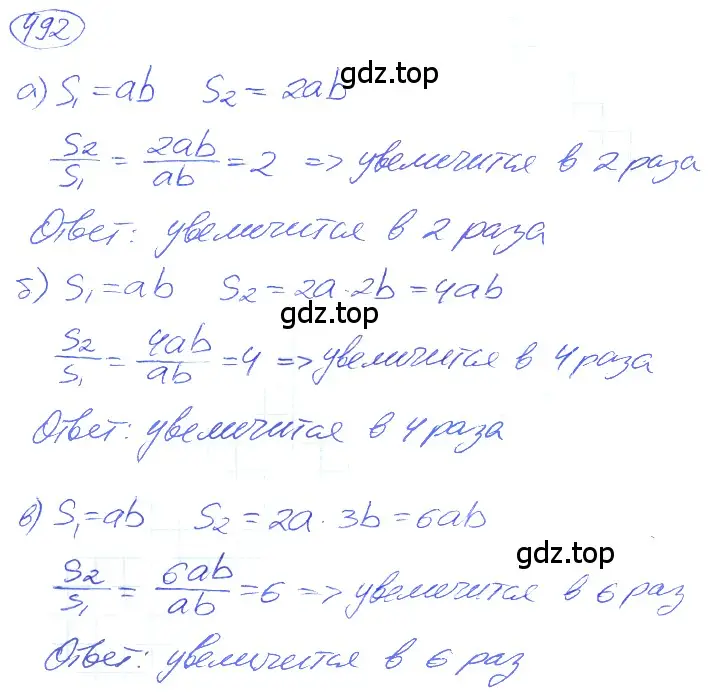 492
gdz.top
а) S₁ = ab S₂ = 2ab
S₂/S₁ = 2ab/ab = 2 => увеличится в 2 раза
Ответ: увеличится в 2 раза
б) S₁ = ab S₂ = 2a·2b = 4ab
gdz.top
S₂/S₁ = 4ab/ab = 4 => увеличится в 4 раза
Ответ: увеличится в 4 раза
в) S₁ = ab S₂ = 2a · 3b = 6ab
gdz.top
S₂/S₁ = 6ab/ab = 6 => увеличится в 6 раз
Ответ: увеличится в 6 раз